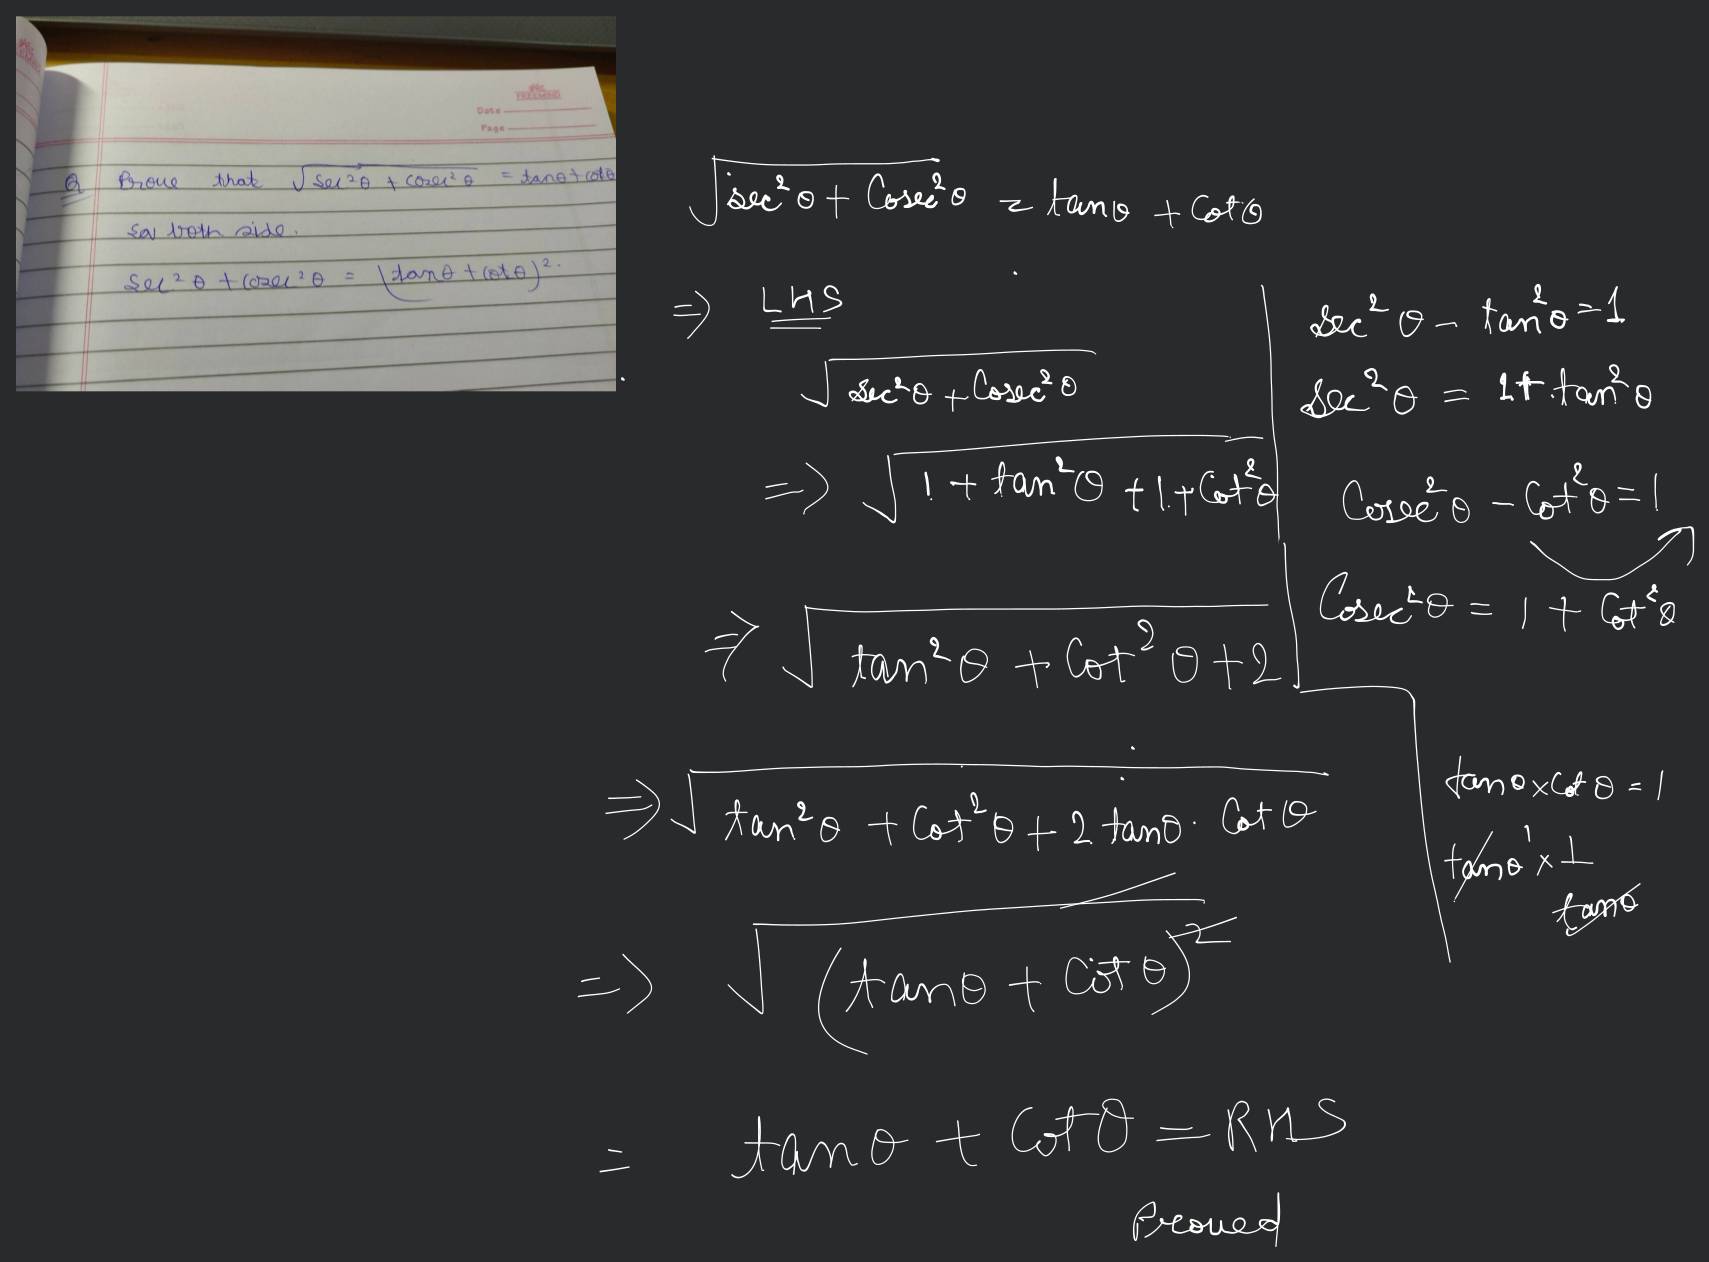 FREEMIND
Date
Page
Q Prove that √sec²θ + cosec²θ = tanθ + cotθ
both side.
sec²θ + cosec²θ = (tanθ + cotθ)².
√sec²θ + Cosec²θ = tanθ + Cotθ
⇒ LHS
√sec²θ + Cosec²θ
⇒ √1 + tan²θ + 1 + Cot²θ
⇒ √tan²θ + Cot²θ + 2
⇒ √tan²θ + Cot²θ + 2 tanθ · Cotθ
⇒ √(tanθ + Cotθ)²
= tanθ + Cotθ = RHS
Proved
sec²θ - tan²θ = 1
sec²θ = 1 + tan²θ
Cosec²θ - Cot²θ = 1
Cosec²θ = 1 + Cot²θ
tanθ × Cotθ = 1
tanθ¹ × 1
tanθ